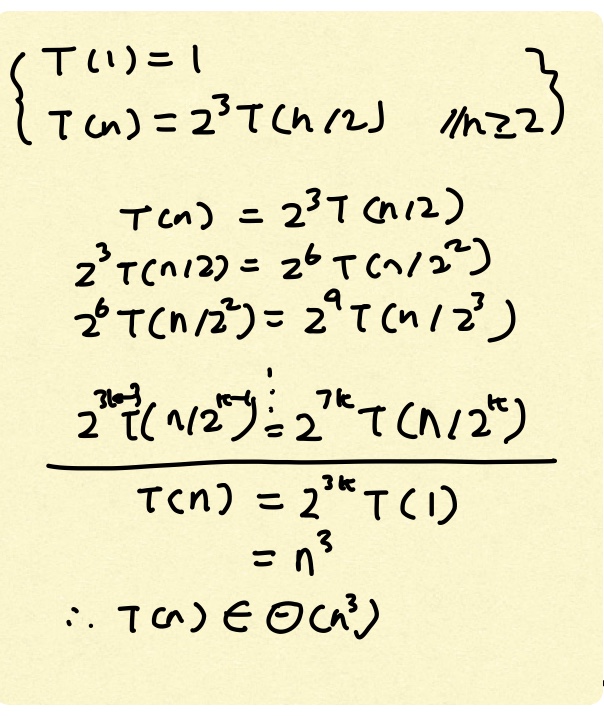 { T(1) = 1 }
{ T(n) = 2³T(n/2) //n≥2 }
T(n) = 2³T(n/2)
2³T(n/2) = 2⁶T(n/2²)
2⁶T(n/2²) = 2⁹T(n/2³)
⋮
2³ᵏ⁻³T(n/2ᵏ⁻¹) = 2⁷ᵏT(n/2ᵏ)
T(n) = 2³ᵏT(1)
= n³
∴ T(n) ∈ Θ(n³)